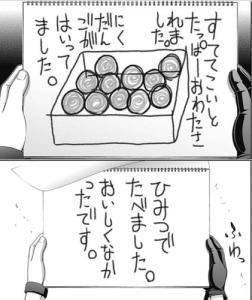 すててこいと
たっぱーおわたさ
れました。
にく
だんごが
はいって
ました。
ひみつで
たべました。
おいしくなか
ったです。
ふわっ